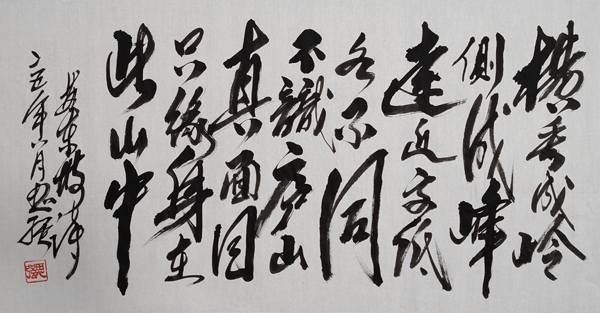 横看成岭
側成峰
遠近高低
各不同
不識庐山
真面目
只緣身在
此山中
东坡诗
年八月